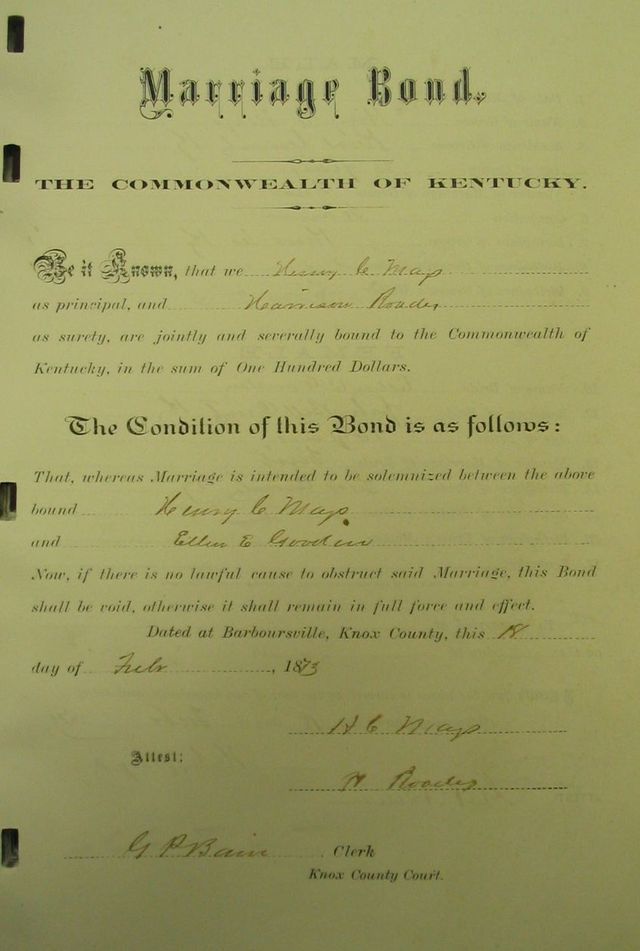 Marriage Bond.
THE COMMONWEALTH OF KENTUCKY.
Be it Known, that we Henry C Mays
as principal, and Harrison Roades
as surety, are jointly and severally bound to the Commonwealth of
Kentucky, in the sum of One Hundred Dollars.
The Condition of this Bond is as follows:
That, whereas Marriage is intended to be solemnized between the above
bound Henry C Mays
and Ellen E Goodin
Now, if there is no lawful cause to obstruct said Marriage, this Bond
shall be void, otherwise it shall remain in full force and effect.
Dated at Barboursville, Knox County, this 18
day of Feb , 1873
H C Mays
Attest:
H Roades
G P Bain , Clerk
Knox County Court.